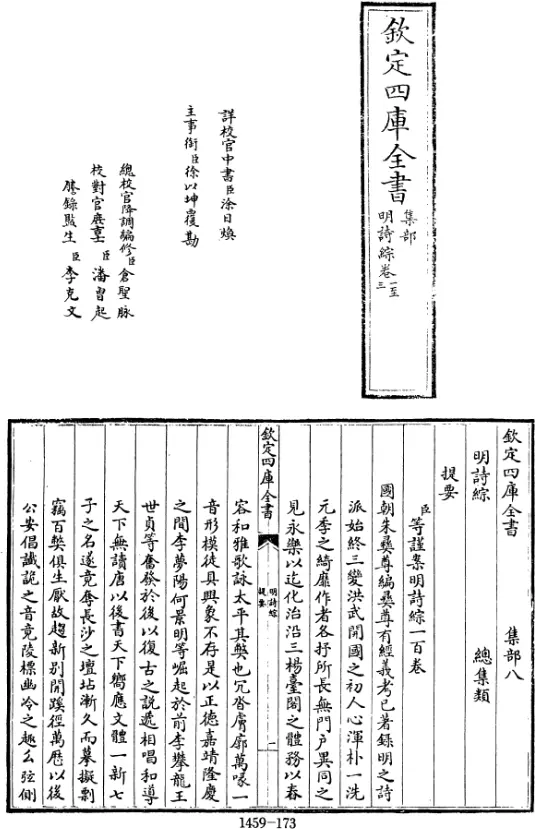 欽定四庫全書
集部
明詩綜卷一至三
詳校官中書臣涂日煥
主事銜臣徐以坤覆勘
總校官降調編修臣倉聖脉
校對官庶吉士臣潘曾起
謄錄監生臣李克文
欽定四庫全書 集部八
明詩綜 總集類
提要
臣等謹案明詩綜一百卷
國朝朱彛尊編彛尊有經義考已著錄明之詩
派始終三變洪武開國之初人心渾朴一洗
元季之綺靡作者各抒所長無門户異同之
見永樂以迄化治沿三楊臺閣之體務以舂
欽定四庫全書 明詩綜提要 一
容和雅歌詠太平其弊也冗沓膚廓萬喙一
音形模徒具興象不存是以正德嘉靖隆慶
之間李夢陽何景明等崛起於前李攀龍王
世貞等奮發於後以復古之説遞相唱和導
天下無讀唐以後書天下嚮應文體一新七
子之名遂竟奪長沙之壇坫漸久而摹擬剽
竊百弊俱生厭故趨新別開蹊徑萬厯以後
公安倡纖詭之音竟陵標幽冷之趣么弦側
1459-173